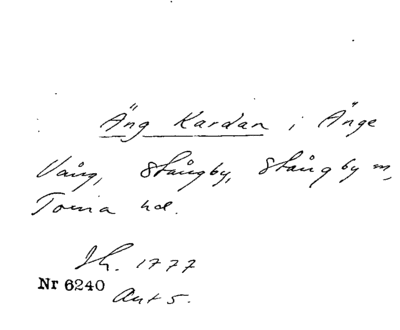 Äng Kardan i Änge
Vång, Stångby, Stångby sn,
Torna hd.
Sk. 1777
Nr 6240
Akt 5.